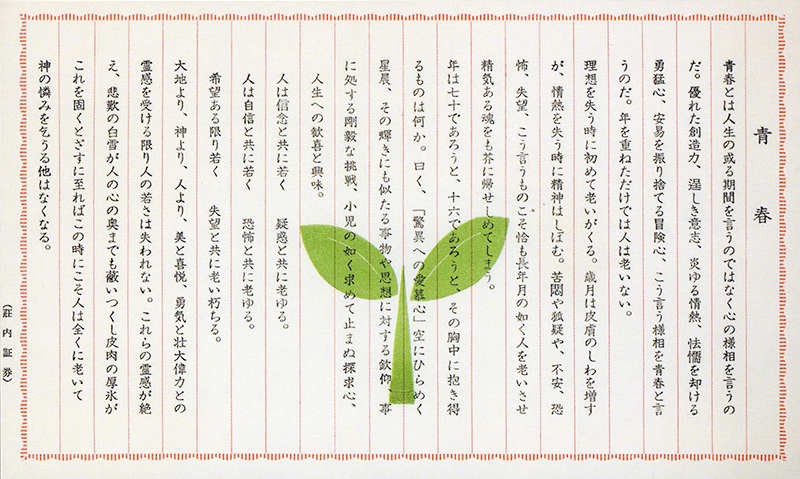 青春
青春とは人生の或る期間を言うのではなく心の様相を言うの
だ。優れた創造力、逞しき意志、炎ゆる情熱、怯懦を却ける
勇猛心、安易を振り捨てる冒険心、こう言う様相を青春と言
うのだ。年を重ねただけでは人は老いない。
理想を失う時に初めて老いがくる。歳月は皮膚のしわを増す
が、情熱を失う時に精神はしぼむ。苦悶や狐疑や、不安、恐
怖、失望、こう言うものこそ恰も長年月の如く人を老いさせ
精気ある魂をも芥に帰せしめてしまう。
年は七十であろうと、十六であろうと、その胸中に抱き得
るものは何か。曰く、「驚異への愛慕心」空にひらめく
星晨、その輝きにも似たる事物や思想に対する欽仰、事
に処する剛毅な挑戦、小児の如く求めて止まぬ探求心、
人生への歓喜と興味。
人は信念と共に若く　疑惑と共に老ゆる。
人は自信と共に若く　恐怖と共に老ゆる。
希望ある限り若く　失望と共に老い朽ちる。
大地より、神より、人より、美と喜悦、勇気と壮大偉力との
霊感を受ける限り人の若さは失われない。これらの霊感が絶
え、悲歎の白雪が人の心の奥までも蔽いつくし皮肉の厚氷が
これを固くとざすに至ればこの時にこそ人は全くに老いて
神の憐みを乞うる他はなくなる。
（荘内証券）